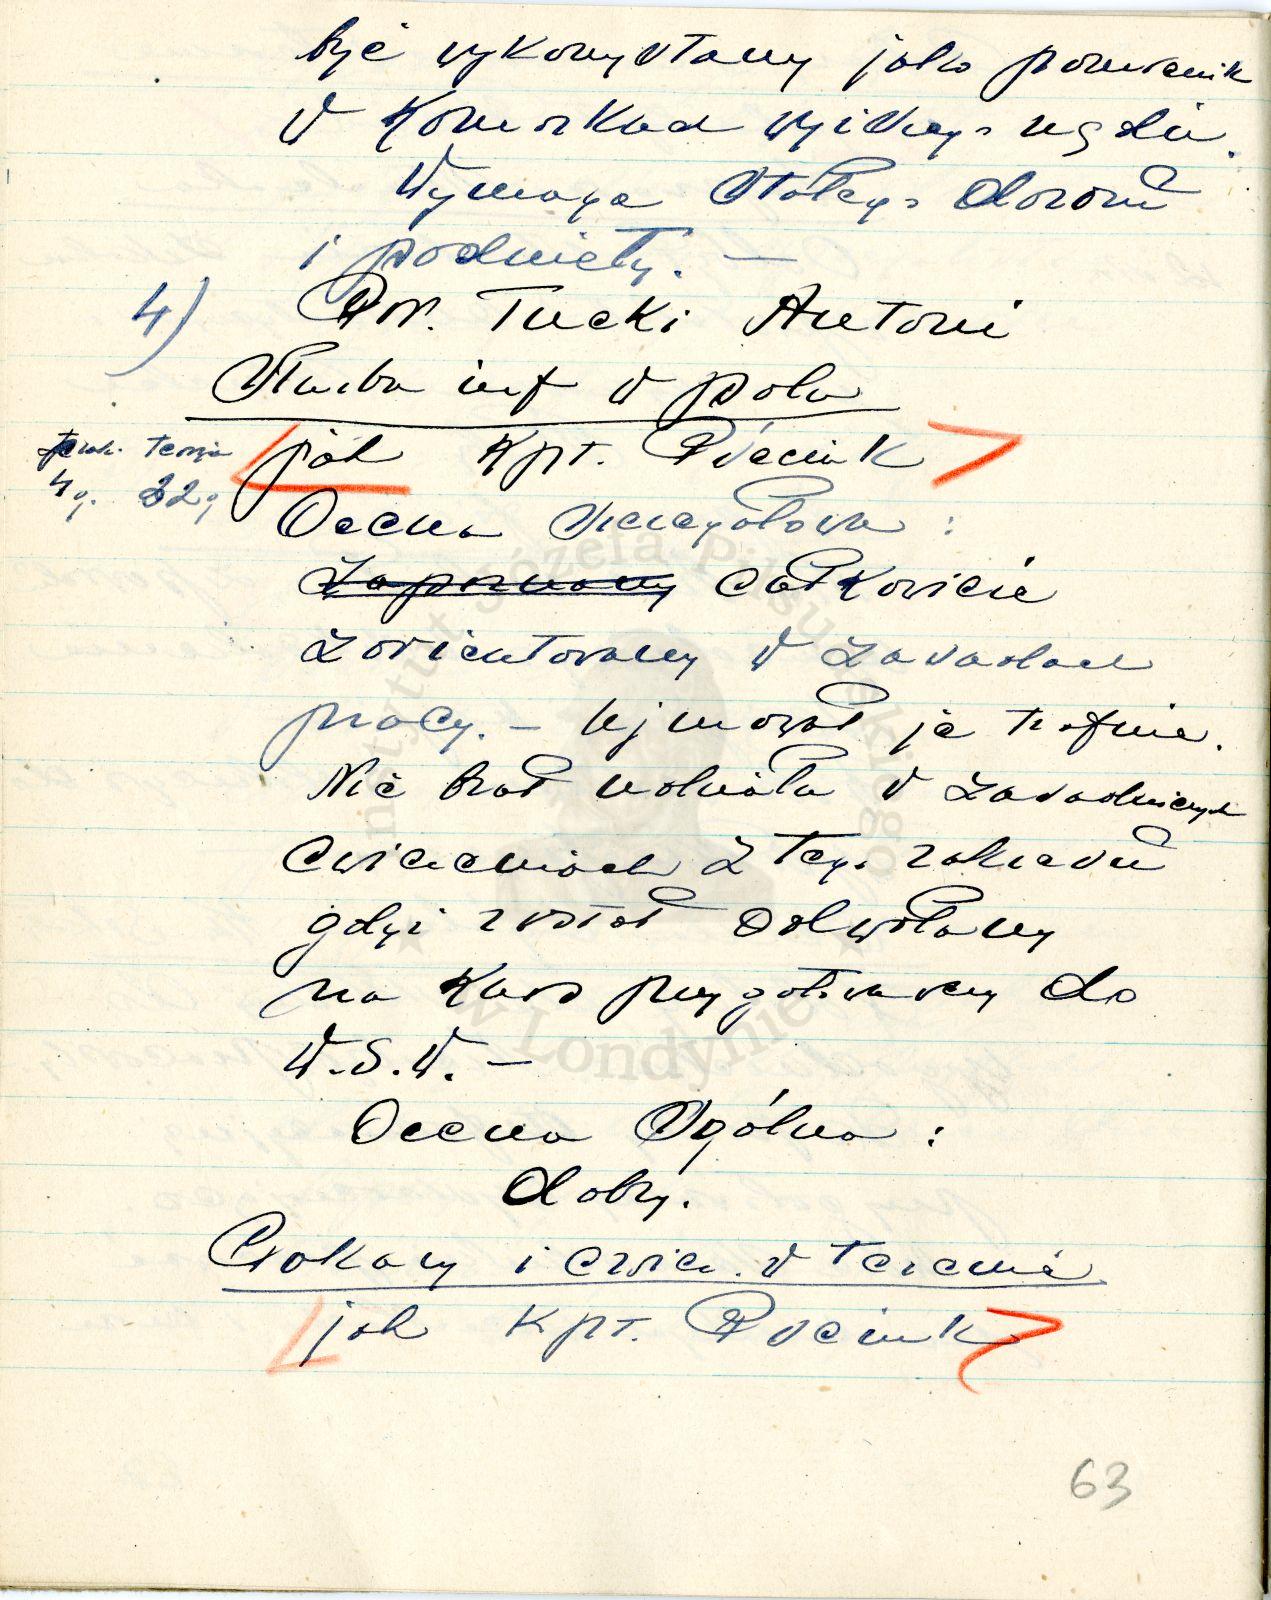 być wykorzystany jako pomocnik
w komórkach wyższego rzędu.
Wymaga stałego dozoru
i podniety. —
4) Por. Tucki Antoni
Służba inf w polu
jak kpt. Piécink
prak. teorja
4 g. 32 g
Ocena szczegółowa :
Zapoznany całkowicie
zorientowany w zasadach
pracy. — Ujmował je trafnie.
Nie brał udziału w zasadniczych
ćwiczeniach z tego zakresu
gdyż został odwołany
na kurs przygotowawczy do
W.S.W. —
Ocena Ogólna :
dobry.
Pokazy i ćwicz. w terenie
jak kpt.
63
Instytut Józefa Piłsudskiego
w Londynie